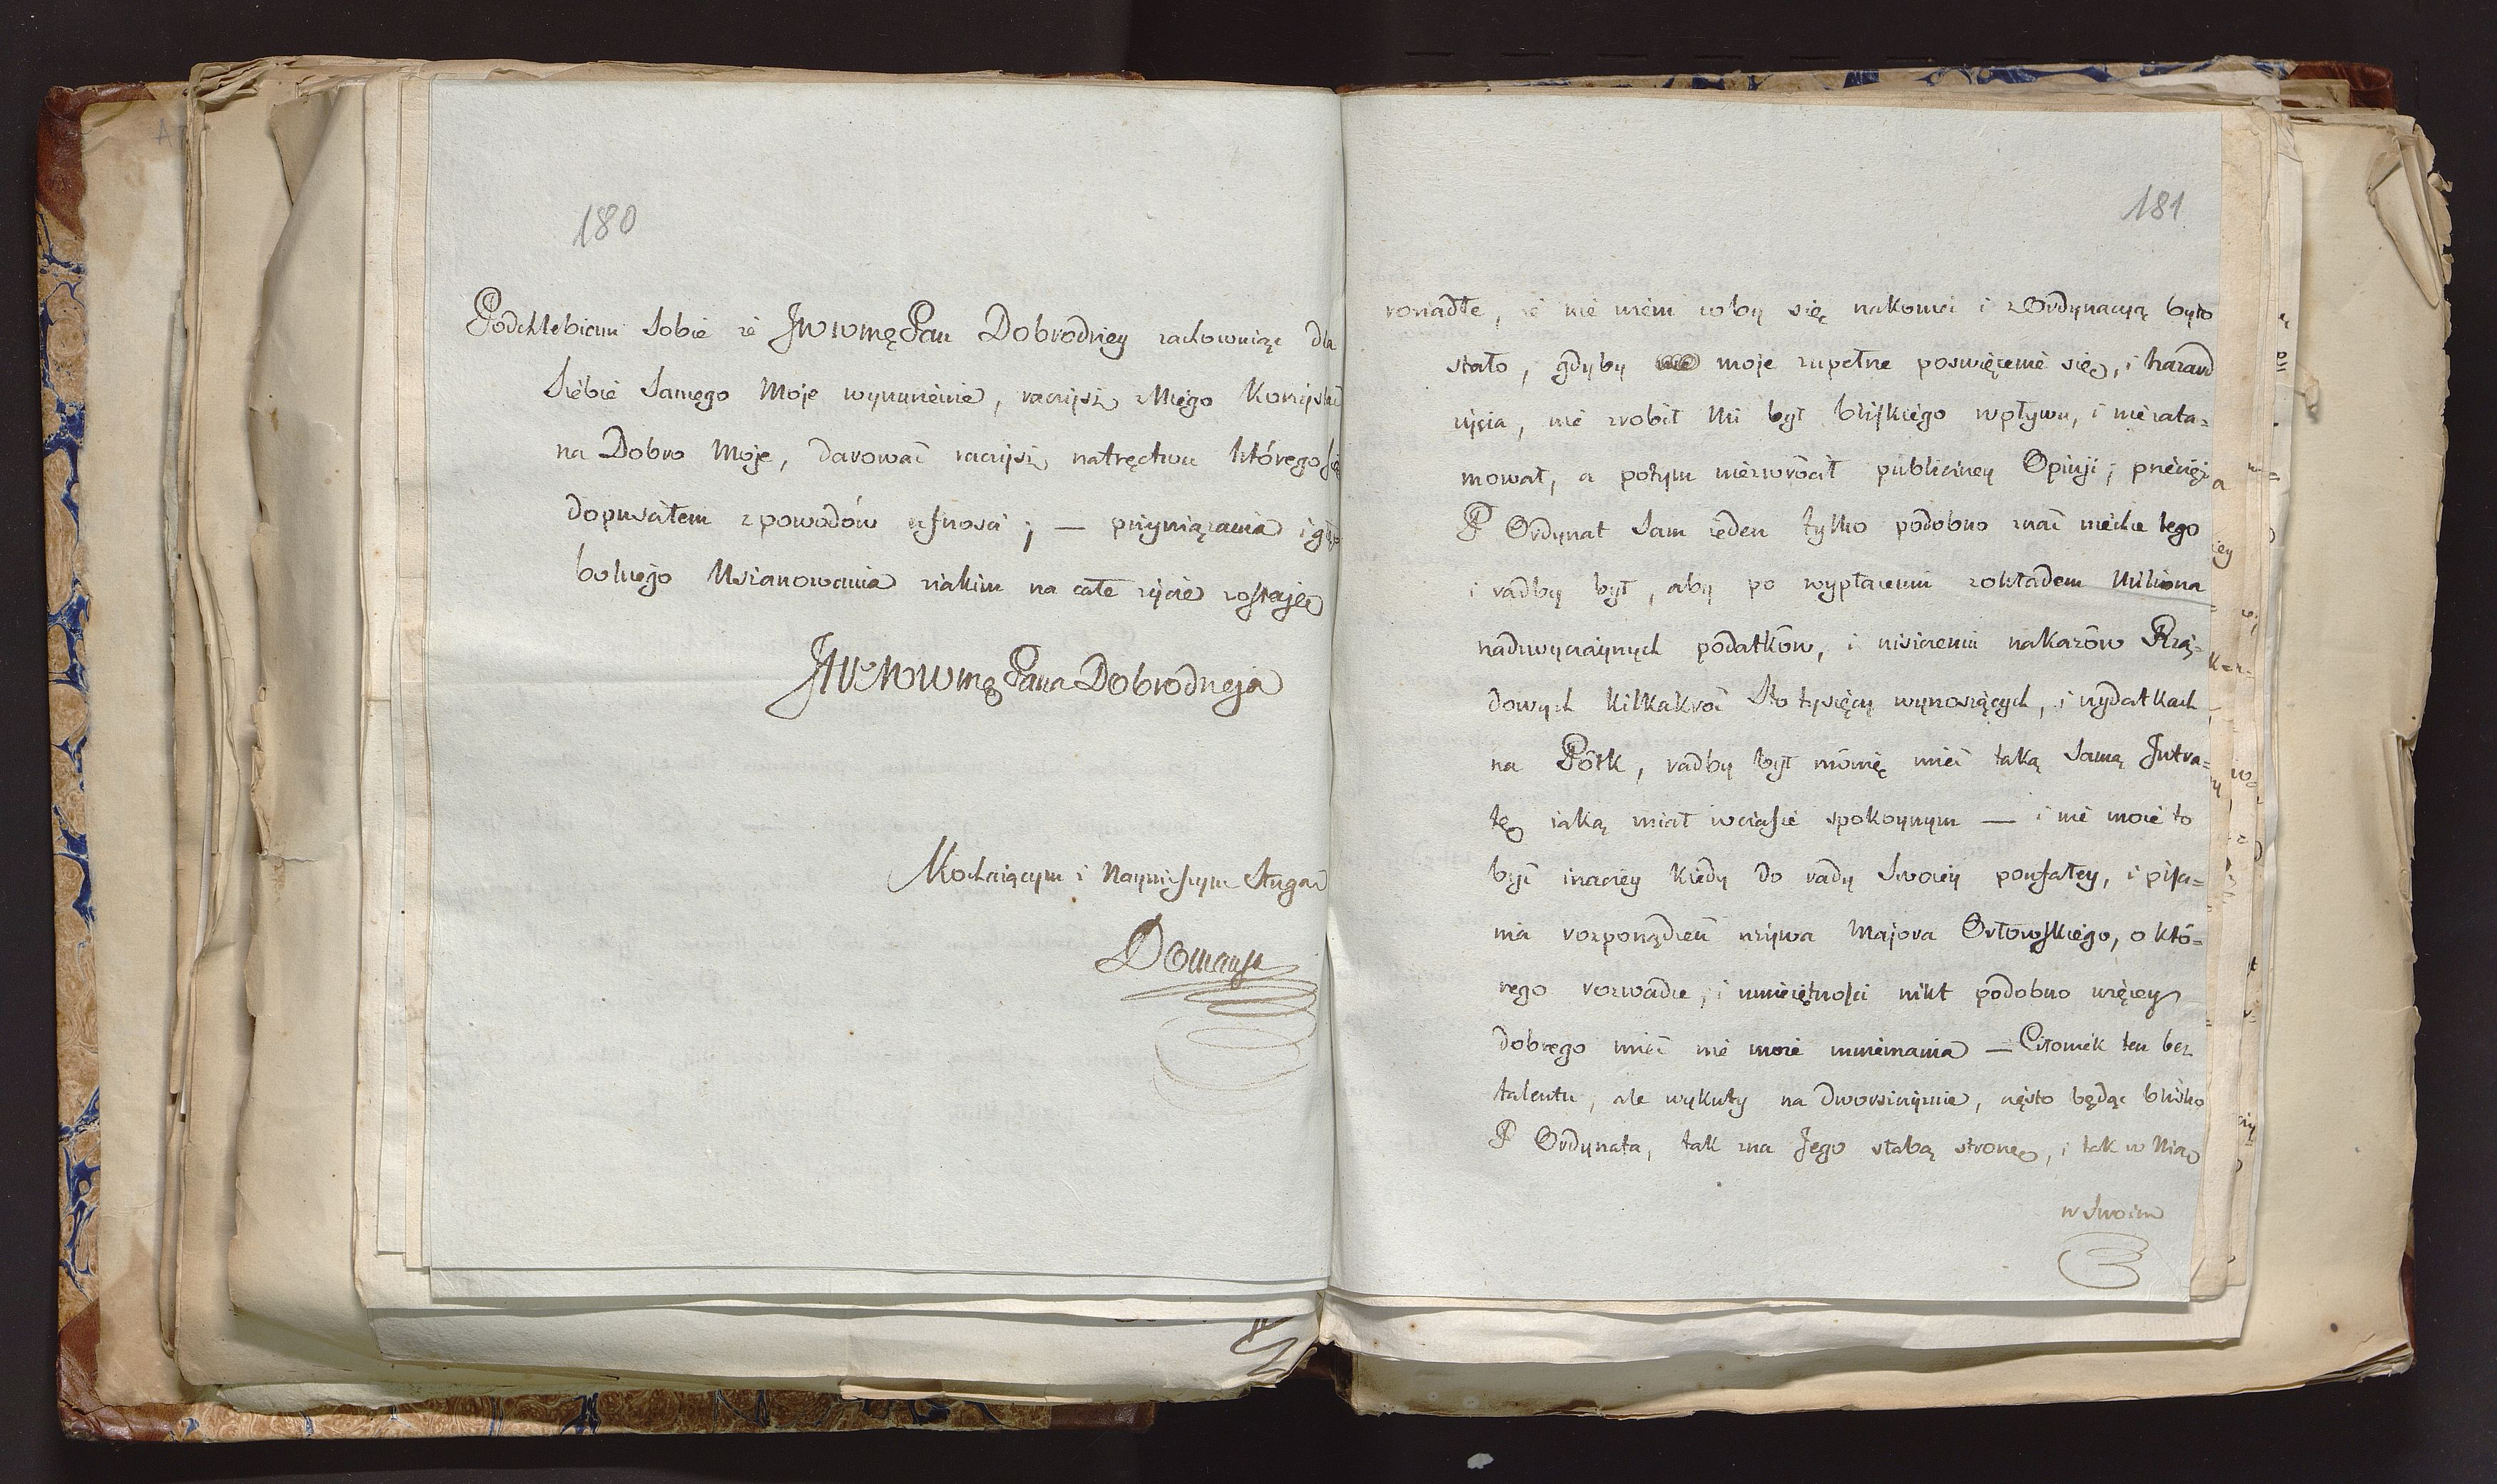 180
Podchlebiam sobie że JWWmę Pan Dobrodziey zachowuiąc dla
Siebie Samego Moje wynurzenie, raczysz z Niego Korzystać
na Dobro Moje, darować raczysz natręctwu którego się
dopuszczałem z powodów ufności ; — przywiązania i głę=
bokiego Uszanowania z iakim na całe życie zostaję
JWWWmę Pana Dobrodzieja
Kochaiącym i Nayniższym Sługą
Domansk
181
zoziadłe, że nie wiem coby się nakoniec i z Ordynacyą było
stało, gdyby moje zupełne poswięcenie się, i hazard
życia, nie zrobił Mi był bliskiego wpływu, i niezata=
mował, a potym niezwrócił publiczney Opinji ; przecież
P Ordynat Sam ieden tylko podobno znać niechce tego
i radby był, aby po wypłaceniu zokładem Miliona
nadzwyczaynych podatków, i uiszczeniu nakazów Rzą=
dowych kilkakroć Sto tysięcy wynoszących, i wydatkach
na Półk, radby był mówię mieć taką Samą Intra=
tę iaką miał wczasie spokoynym — i nie może to
być inaczey kiedy do rady Swoiey poufałey, i pisa=
nia rozporządzeń używa Majora Orłowskiego, o któ=
rego rozwadze, i umieiętności nikt podobno więcey
dobrego mieć nie może mniemania — Człowiek ten bez
talentu, ale wykuty na dworszczyznie, często będąc blisko
P Ordynata, tak zna Jego słabą stronę, i tak w Nią
w Swoim